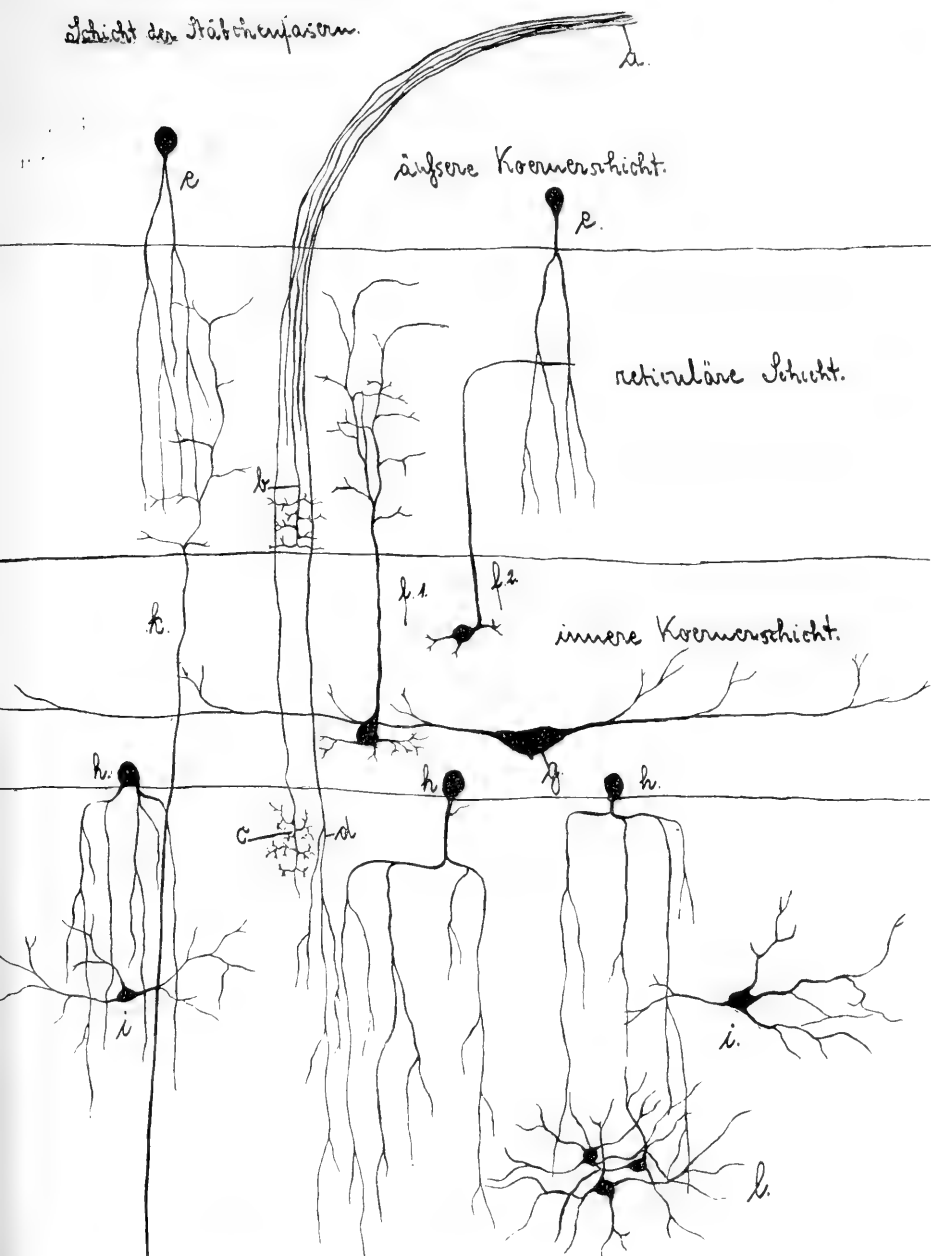 Schicht der Stäbchenfasern.
a.
äußere Koernerschicht.
e
e.
reticuläre Schicht.
b
f.1.
f.2.
k.
innere Koernerschicht.
h.
h
g.
h.
c
d
i
i.
l.